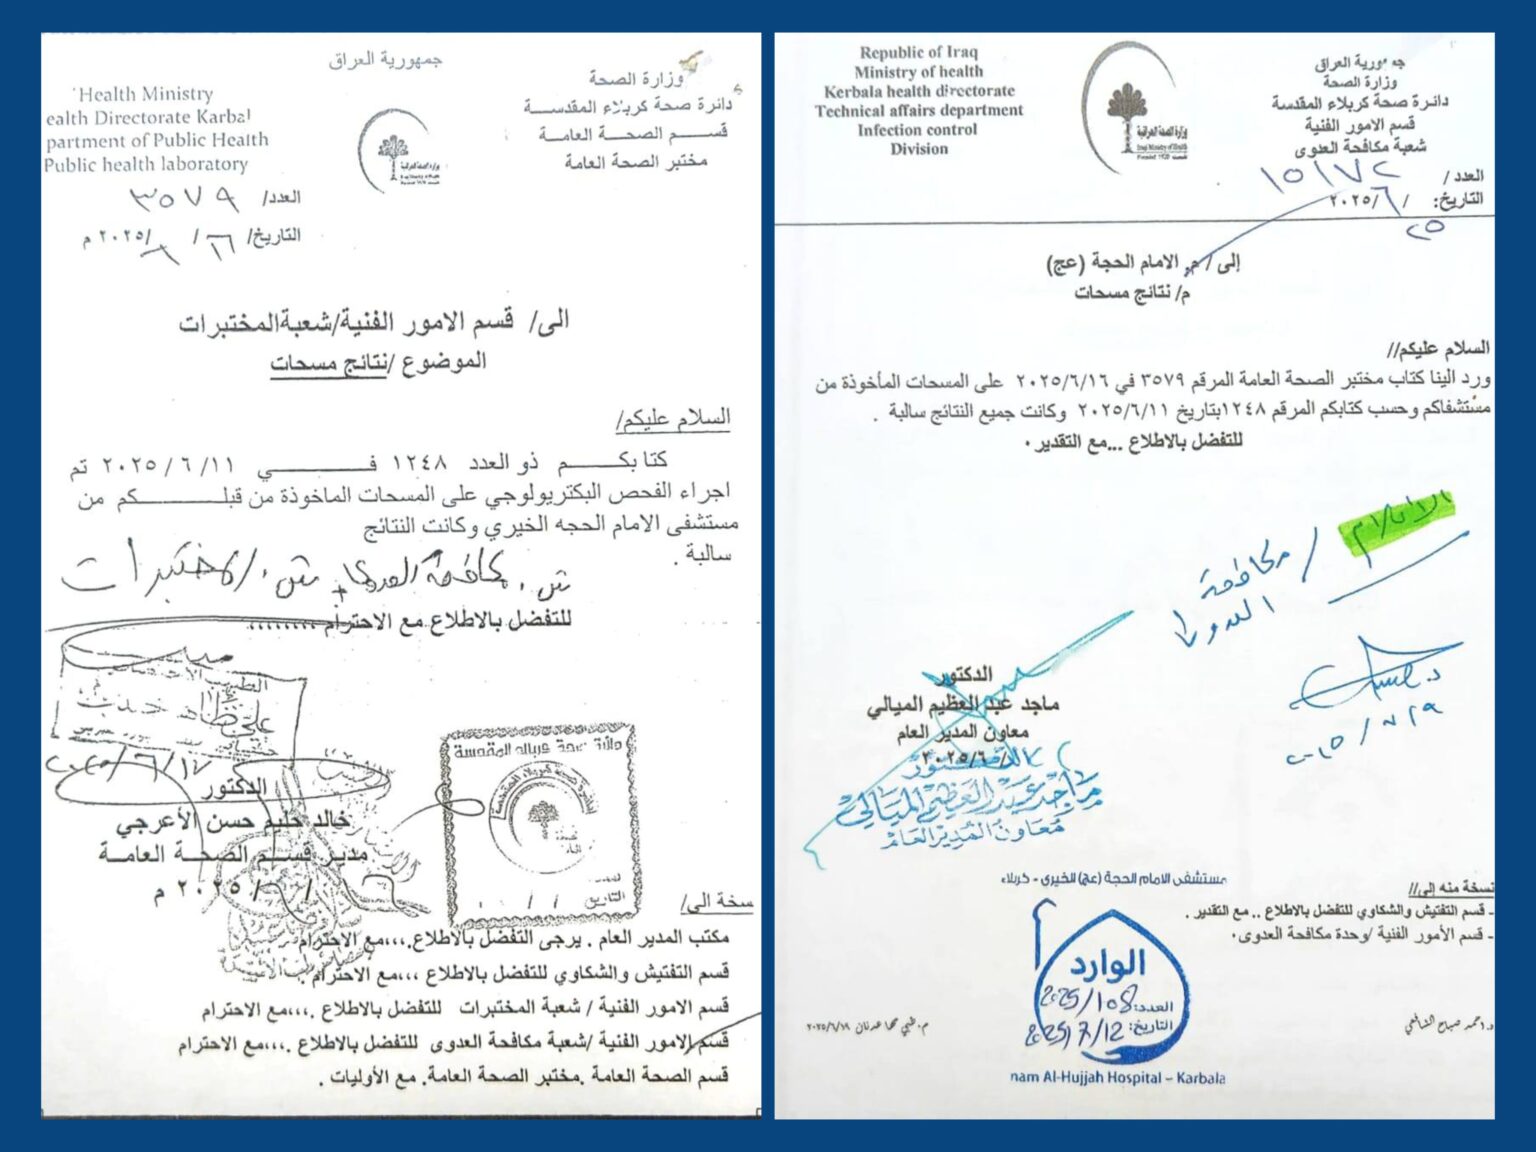 جمهورية العراق
وزارة الصحة
دائرة صحة كربلاء المقدسة
قسم الصحة العامة
مختبر الصحة العامة
Health Ministry
ealth Directorate Karbal
partment of Public Health
Public health laboratory
العدد/ ٣٥٧٩
التاريخ/ ١٦ / ٦ /٢٠٢٥ م
الى/ قسم الامور الفنية/شعبةالمختبرات
الموضوع /نتائج مسحات
السلام عليكم/
كتابكم ذو العدد ١٢٤٨ في ٢٠٢٥/٦/١١ تم
اجراء الفحص البكتريولوجي على المسحات الماخوذة من قبلكم من
مستشفى الامام الحجه الخيري وكانت النتائج
سالبة .
ش. مكافحة العدوى + ش. المختبرات
للتفضل بالاطلاع مع الاحترام ........
الدكتور
خالد حليم حسن الأعرجي
مدير قسم الصحة العامة
٢٠٢٥ م
دائرة صحة كربلاء المقدسة
التاريخ
سخة الى/
مكتب المدير العام . يرجى التفضل بالاطلاع.،،،مع الاحترام
قسم التفتيش والشكاوي للتفضل بالاطلاع ،،،مع الاحترام .
قسم الامور الفنية / شعبة المختبرات للتفضل بالاطلاع .،،،مع الاحترام
قسم الامور الفنية /شعبة مكافحة العدوى للتفضل بالاطلاع .،،،مع الاحترام
قسم الصحة العامة .مختبر الصحة العامة. مع الأوليات .
Republic of Iraq
Ministry of health
Kerbala health directorate
Technical affairs department
Infection control
Division
وزارة الصحة العراقية
Iraq Ministry of Health
Founded 1920
جمهورية العراق
وزارة الصحة
دائرة صحة كربلاء المقدسة
قسم الامور الفنية
شعبة مكافحة العدوى
العدد / ١٥١٧٢
التاريخ: ٢٥ / ٦ /٢٠٢٥
إلى / م. الامام الحجة (عج)
م/ نتائج مسحات
السلام عليكم//
ورد الينا كتاب مختبر الصحة العامة المرقم ٣٥٧٩ في ٢٠٢٥/٦/١٦ على المسحات المأخوذة من
مستشفاكم وحسب كتابكم المرقم ١٢٤٨بتاريخ ٢٠٢٥/٦/١١ وكانت جميع النتائج سالبة .
للتفضل بالاطلاع ...مع التقدير .
مكافحة
العدوى
الدكتور
ماجد عبد العظيم الميالي
معاون المدير العام
٢٠٢٥/٦/
الدكتور
ماجد عبد العظيم الميالي
معاون المدير العام
نسخة منه إلى//
- قسم التفتيش والشكاوي للتفضل بالاطلاع .. مع التقدير .
- قسم الأمور الفنية /وحدة مكافحة العدوى.
مستشفى الامام الحجة (عج) الخيري - كربلاء
الوارد
العدد: 2025/108
التاريخ: 2025/7/12
nam Al-Hujjah Hospital – Karbala